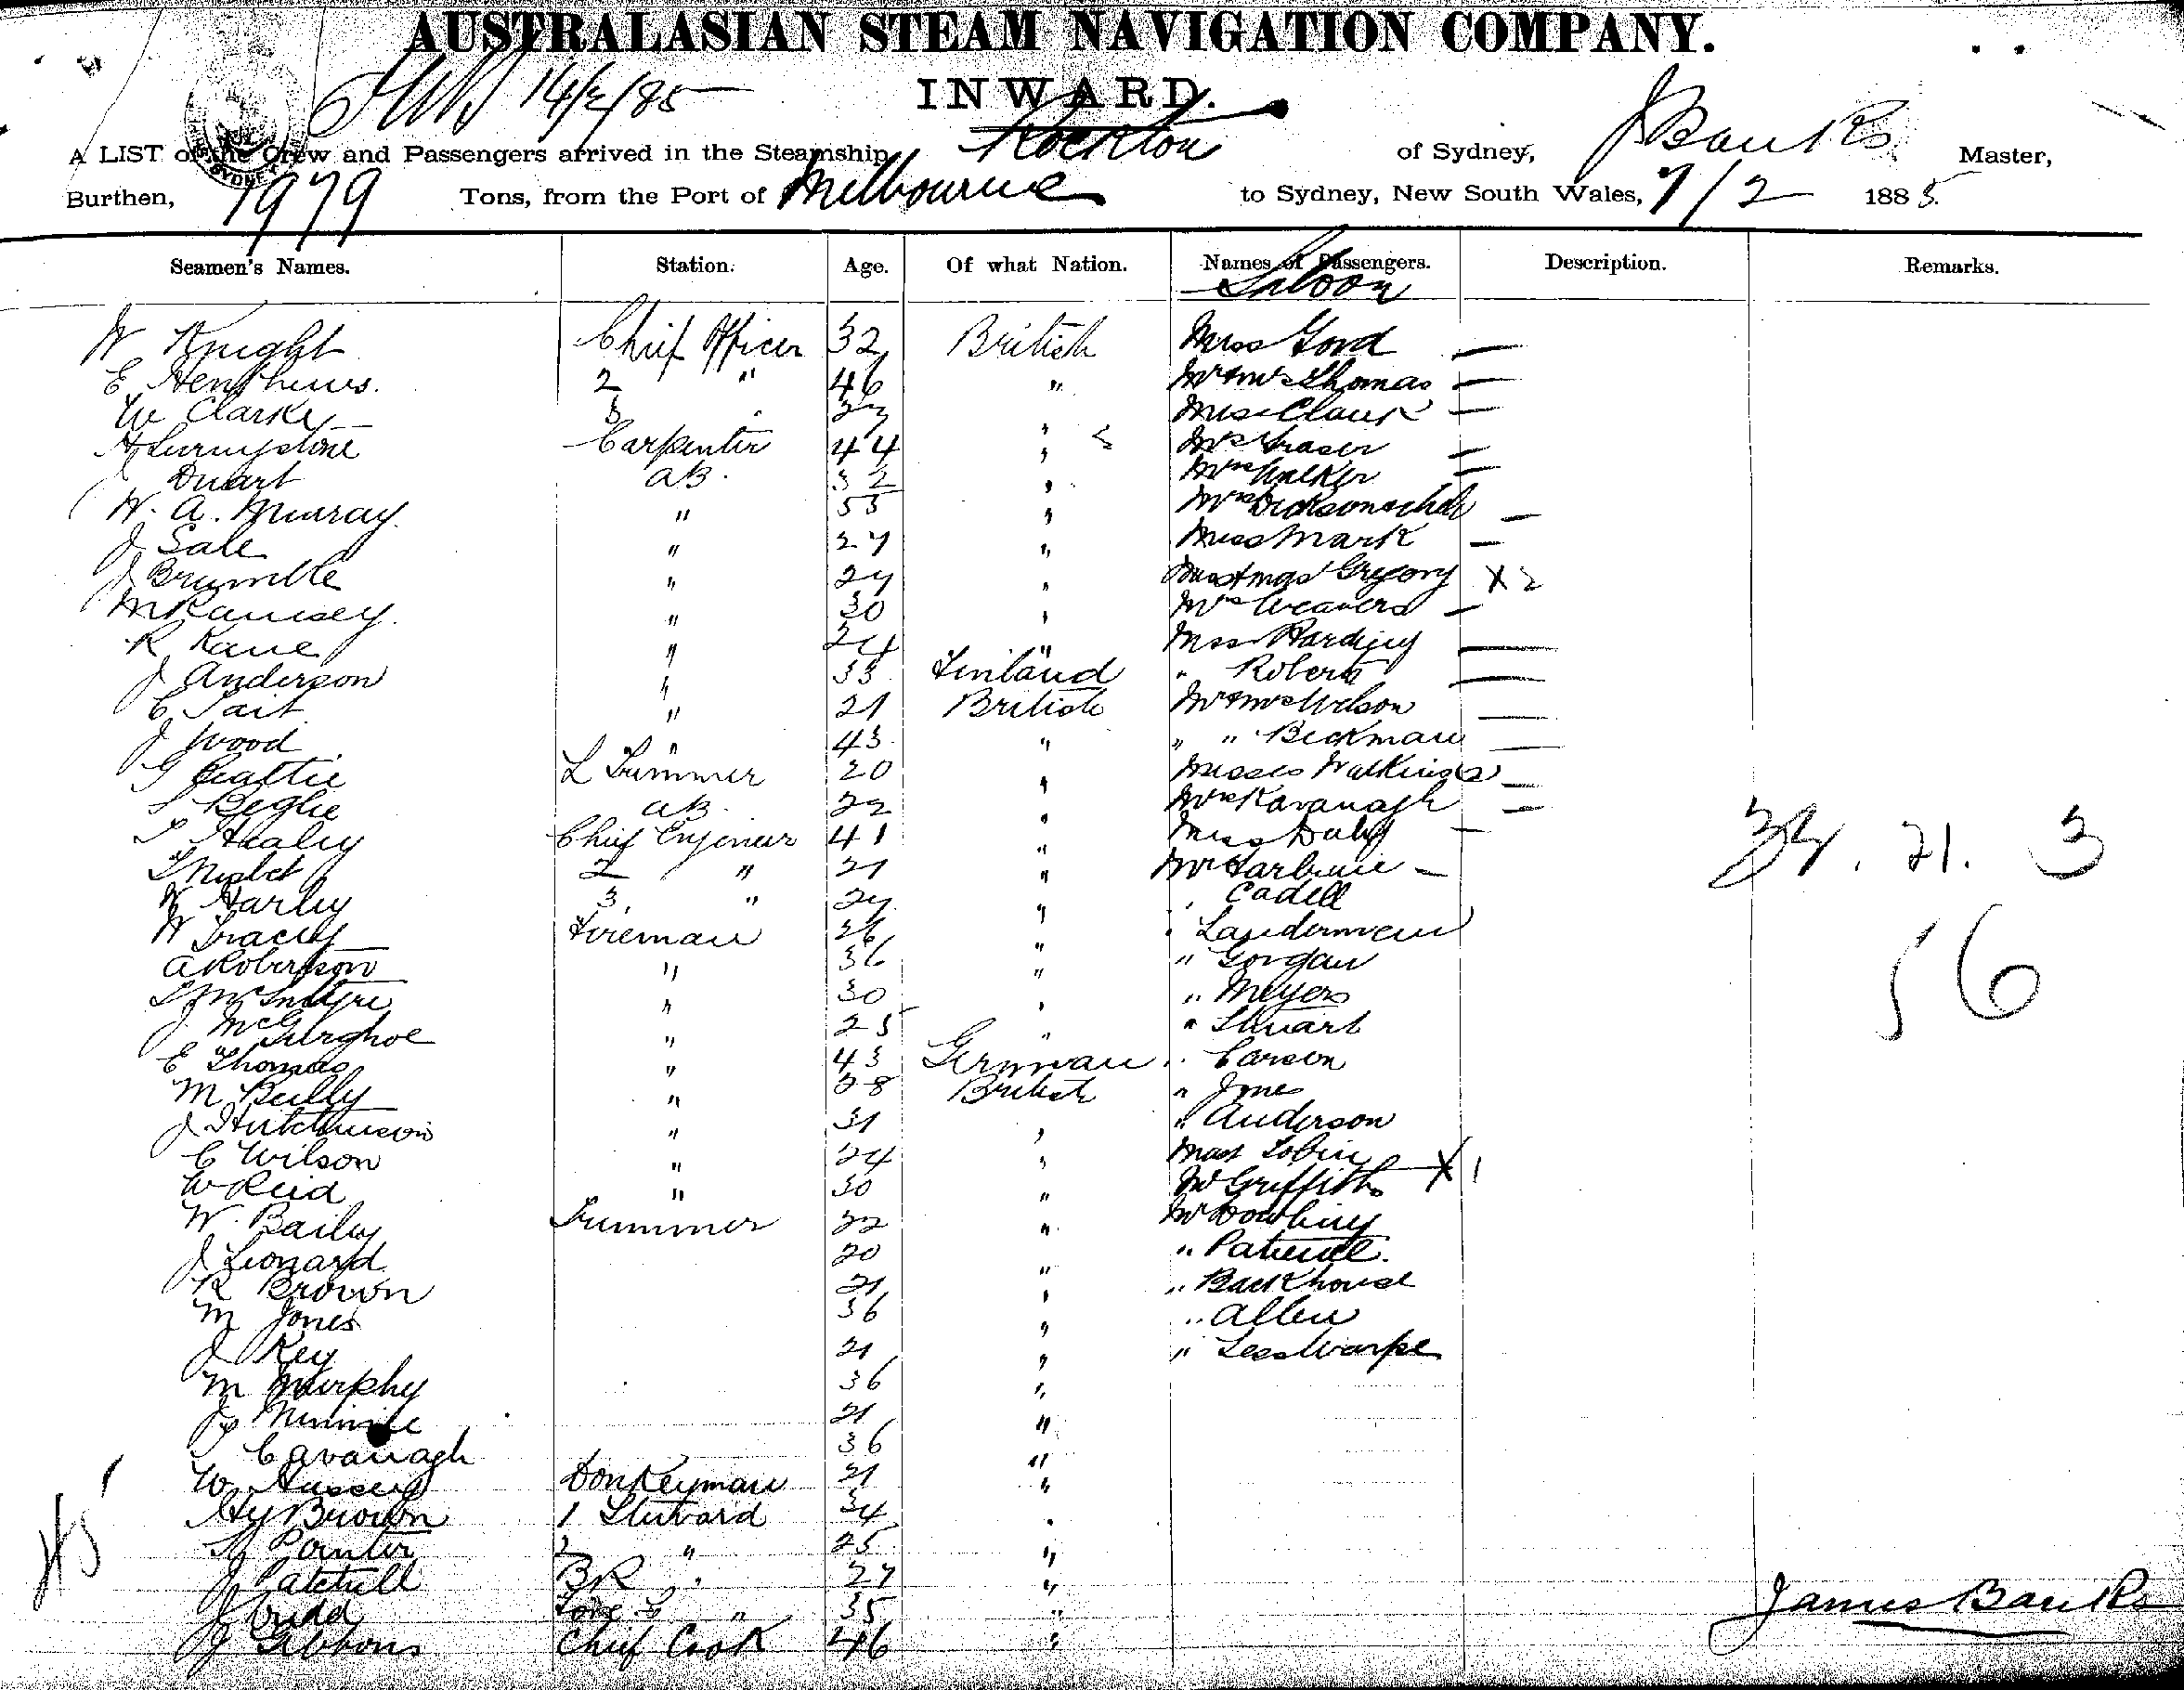 AUSTRALASIAN STEAM NAVIGATION COMPANY.
INWARD.
14/2/85
A LIST of the Crew and Passengers arrived in the Steamship Rockton of Sydney, J Banks Master,
Burthen, 1979 Tons, from the Port of Melbourne to Sydney, New South Wales, 7/2 1885.
Seamen's Names. Station. Age. Of what Nation. Names of Passengers. Description. Remarks.
Saloon
W Knight Chief Officer 32 British Miss Gord —
E 2 " 46 " Mr & Mrs Thomas —
W Clarke 3 " 27 Miss Clark —
A Livingstone Carpenter 44 " Mrs Fraser —
J Duart AB. 32 " Mrs Walker —
W. A. Murray 55 " Mrs Dickson & child —
J Sale " 27 " Miss Mark —
J Brumble " 27 " Gregory X 2
M Ramsey " 30 " Mrs Weavers —
R Kane " 24 " Miss Harding —
J Anderson " 33 Finland " Roberts —
C Tait " 21 British Mr & Mrs Wilson —
J Wood " 43 " " " Beckman —
G Beattie L Trimmer 20 " Misses Watkins —
S Beglie AB. 22 " Mrs Kavanagh —
T Healey Chief Engineer 41 " Miss Daly —
T Nisbet 2 " 21 " Mr —
W Harley 3 " 27 " " Cadell
W Tracey Fireman 26 " "
A Robertson " 36 " " Gorgan
McIntyre " 30 " " Meyers
J " 25 " " Stuart
E Thomas " 43 German " Carson
M Bully " 28 British " Jones
J Hutchinson " 31 " " Anderson
C Wilson " 24 " Mast Tobin X 1
W Reid " 30 " Mr Griffiths
W. Baily Trimmer 22 " Mr Dowling
J Leonard 20 " "
R Brown 21 " " Backhouse
M Jones 36 " " Allen
J Key 21 "
M Murphy 36 "
J 21 "
Cavanagh 36 "
W Hussey Donkeyman 21 "
Hy Brown 1 Steward 34 "
Pointer 2 " 25 "
J Patchell BR " 27 "
J Judd Fore C " 35 "
J Gibbons Chief Cook 46 "
34. 21. 3
56
45
James Banks